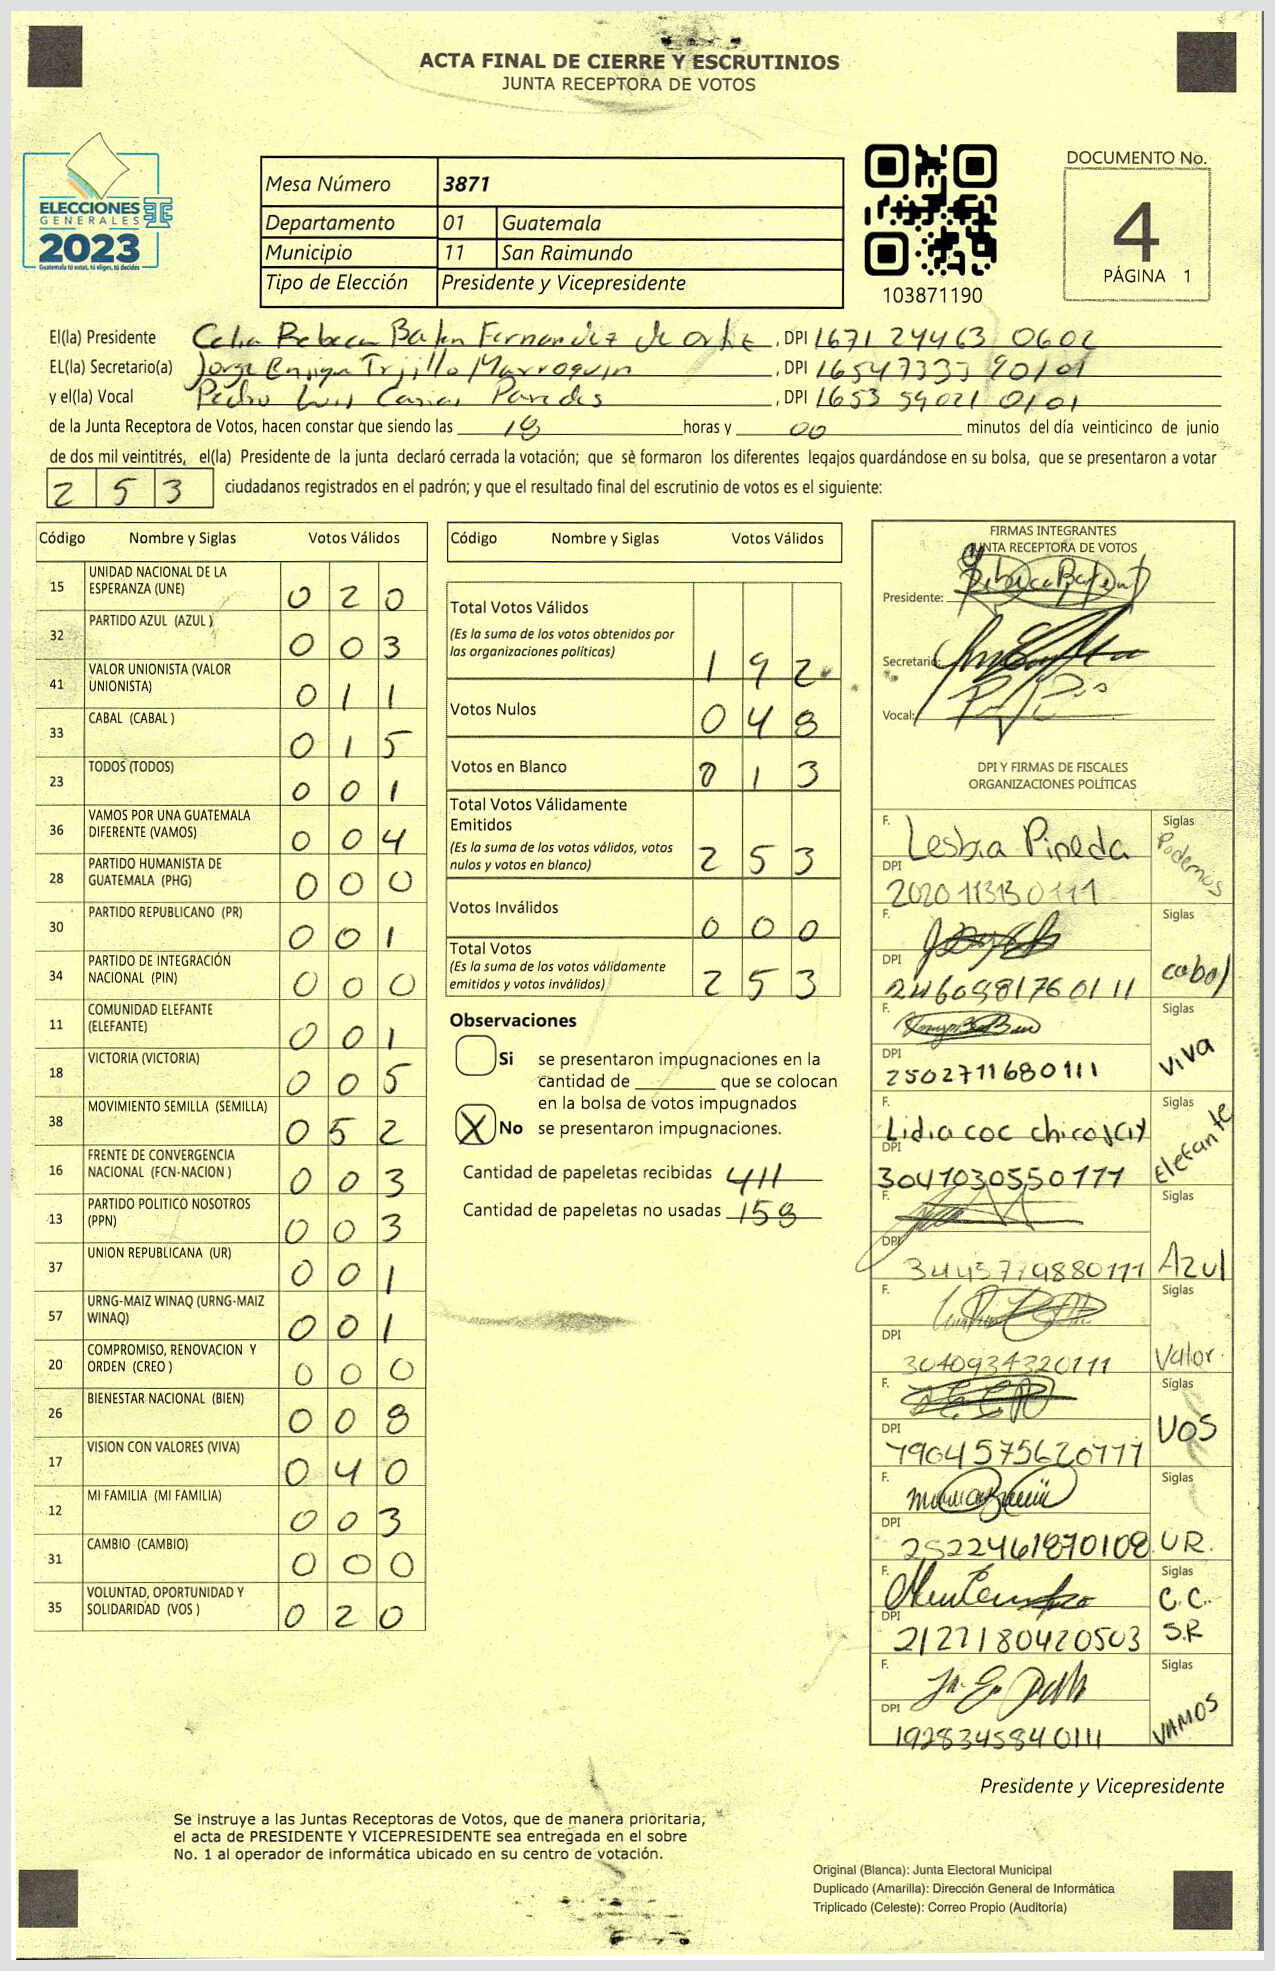 ACTA FINAL DE CIERRE Y ESCRUTINIOS
JUNTA RECEPTORA DE VOTOS
ELECCIONES
GENERALES
2023
Guatemala tú votas, tú eliges, tú decides
Mesa Número 3871
Departamento 01 Guatemala
Municipio 11 San Raimundo
Tipo de Elección Presidente y Vicepresidente
103871190
DOCUMENTO No.
4
PÁGINA 1
El(la) Presidente Celia Rebeca Fernandez de Ortiz, DPI 1671 24463 0602
EL(la) Secretario(a) Jorge Enrique Trujillo Marroquin, DPI 16547333 90101
y el(la) Vocal Pedro Luis Paredes, DPI 1653 59021 0101
de la Junta Receptora de Votos, hacen constar que siendo las 18 horas y 00 minutos del día veinticinco de junio
de dos mil veintitrés, el(la) Presidente de la junta declaró cerrada la votación; que se formaron los diferentes legajos guardándose en su bolsa, que se presentaron a votar
253 ciudadanos registrados en el padrón; y que el resultado final del escrutinio de votos es el siguiente:
Código Nombre y Siglas Votos Válidos
15 UNIDAD NACIONAL DE LA ESPERANZA (UNE) 0 2 0
32 PARTIDO AZUL (AZUL ) 0 0 3
41 VALOR UNIONISTA (VALOR UNIONISTA) 0 1 1
33 CABAL (CABAL ) 0 1 5
23 TODOS (TODOS) 0 0 1
36 VAMOS POR UNA GUATEMALA DIFERENTE (VAMOS) 0 0 4
28 PARTIDO HUMANISTA DE GUATEMALA (PHG) 0 0 0
30 PARTIDO REPUBLICANO (PR) 0 0 1
34 PARTIDO DE INTEGRACIÓN NACIONAL (PIN) 0 0 0
11 COMUNIDAD ELEFANTE (ELEFANTE) 0 0 1
18 VICTORIA (VICTORIA) 0 0 5
38 MOVIMIENTO SEMILLA (SEMILLA) 0 5 2
16 FRENTE DE CONVERGENCIA NACIONAL (FCN-NACION ) 0 0 3
13 PARTIDO POLITICO NOSOTROS (PPN) 0 0 3
37 UNION REPUBLICANA (UR) 0 0 1
57 URNG-MAIZ WINAQ (URNG-MAIZ WINAQ) 0 0 1
20 COMPROMISO, RENOVACION Y ORDEN (CREO ) 0 0 0
26 BIENESTAR NACIONAL (BIEN) 0 0 8
17 VISION CON VALORES (VIVA) 0 4 0
12 MI FAMILIA (MI FAMILIA) 0 0 3
31 CAMBIO (CAMBIO) 0 0 0
35 VOLUNTAD, OPORTUNIDAD Y SOLIDARIDAD (VOS ) 0 2 0
Código Nombre y Siglas Votos Válidos
Total Votos Válidos 1 9 2
(Es la suma de los votos obtenidos por
las organizaciones políticas)
Votos Nulos 0 4 8
Votos en Blanco 0 1 3
Total Votos Válidamente
Emitidos
(Es la suma de los votos válidos, votos
nulos y votos en blanco) 2 5 3
Votos Inválidos 0 0 0
Total Votos
(Es la suma de los votos válidamente
emitidos y votos inválidos) 2 5 3
Observaciones
Si se presentaron impugnaciones en la
cantidad de ________ que se colocan
en la bolsa de votos impugnados
X No se presentaron impugnaciones.
Cantidad de papeletas recibidas 411
Cantidad de papeletas no usadas 158
FIRMAS INTEGRANTES
JUNTA RECEPTORA DE VOTOS
Presidente:
Secretario:
Vocal:
DPI Y FIRMAS DE FISCALES
ORGANIZACIONES POLÍTICAS
F. Lesbia Pineda Siglas Podemos
DPI
F. Siglas cabal
DPI 2460981760111
F. Siglas VIVA
DPI 2502711680111
F. Lidia coc chicojay Siglas Elefante
DPI 3041030550111
F. Siglas Azul
DPI 3445779880111
F. Siglas Valor
DPI 3040934320111
F. Siglas VOS
DPI 1904575620111
F. Siglas U.R.
DPI 2522461870108
F. Siglas C.C. S.R
DPI 2127180420503
F. Siglas VAMOS
DPI 1928345840111
Presidente y Vicepresidente
Se instruye a las Juntas Receptoras de Votos, que de manera prioritaria,
el acta de PRESIDENTE Y VICEPRESIDENTE sea entregada en el sobre
No. 1 al operador de informática ubicado en su centro de votación.
Original (Blanca): Junta Electoral Municipal
Duplicado (Amarilla): Dirección General de Informática
Triplicado (Celeste): Correo Propio (Auditoría)